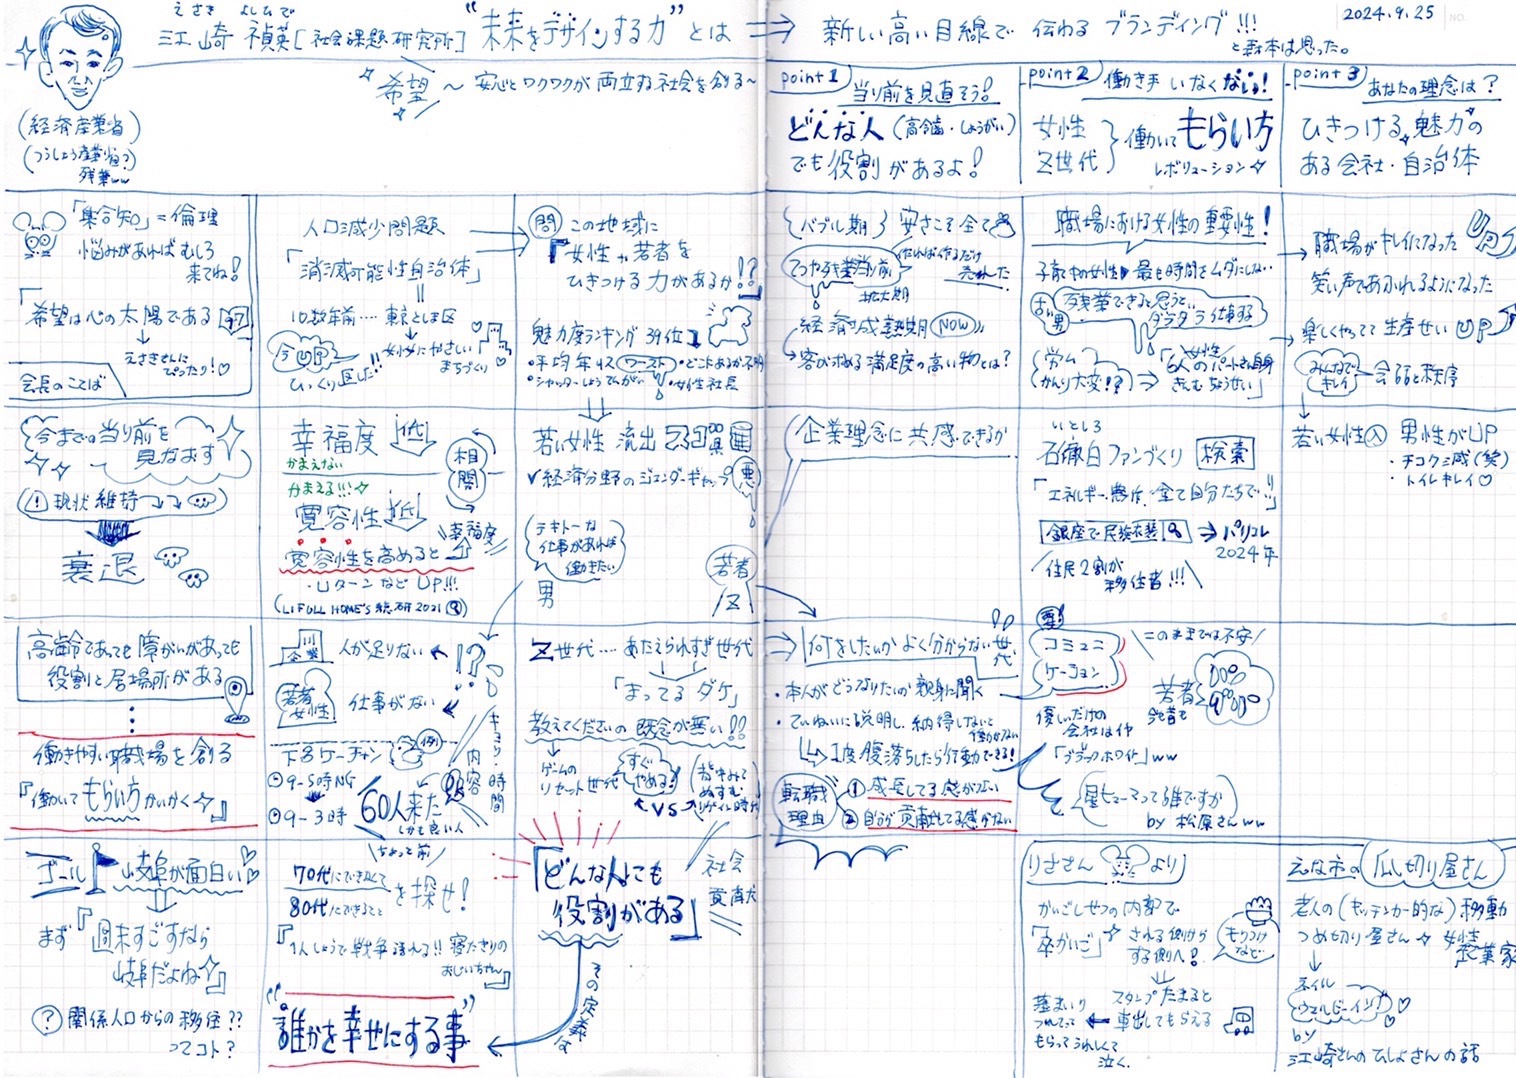 えさき よしひで
江崎 禎英[社会課題研究所]
"未来をデザインする力"とは
⇒ 新しい高い目線で 伝わる ブランディング!!!
と森本は思った。
2024.9.25
NO.
希望 〜 安心とワクワクが両立する社会を創る〜
(経済産業省)
(つうしょう産業省?)
残業ww
point1 当り前を見直そう!
どんな人(高令歯・しょうがい)
でも役割があるよ!
point2 働き手いなくない!
女性
Z世代
働いてもらい方
レボリューション
point3 あなたの理念は?
ひきつける魅力の
ある会社・自治体
「集合知」=倫理
悩みがあればむしろ
来てね!
「希望は心の太陽である
えさきさんに
ぴったり!♡
会長のことば
人口減少問題
「消滅可能性自治体」
10数年前‥‥東京としま区
今UP
女性にやさしい
まちづくり
問 この地域に
『女性や若者を
ひきつける力があるか!?』
魅力度ランキング 39位
・平均年収 ワースト
・どこにあるか不明
・シャッターしょうてんがい
・女性社長
バブル期 安さこそ全て
てつや残業当り前
作れば作るだけ
売れした
拡大期
経済成熟期 NOW
客が求める満足度の高い物とは?
職場における女性の重要性!
子育て中の女性 最も時間をムダにしない
男 残業できると思うと、
ダラダラ仕事する
労ム
かんり大変!?
「6人のパートさん自身
女性
きんむちょうせい」
職場がキレイになった UP
笑い声であふれるようになった
楽しくやってて生産せいUP
みんなで
キレイ
会話と秩序
若い女性入 男性がUP
・チコク減(笑)
・トイレキレイ♡
今までの当り前を
見なおす
! 現状維持
衰退
幸福度 低
かまえない
かまえる!!!
寛容性 低
相関
寛容性を高めると 幸福度
・UターンなどUP!!!
(LIFULL HOME'S総研2021)
若い女性 流出
✓経済分野のジェンダーギャップ 悪
テキトーな
仕事があれば
働きたい
男
若者
Z
企業理念に共感できるか
いとしろ
石徹白ファンづくり 検索
「エネルギー農は、全て自分たちで‥」
銀座で民族衣装 → パリコレ
2024年
住民2割が
移住者!!!
高齢であっても障がいがあっても
役割と居場所がある
働きやすい職場を創る
『働いてもらい方かいかく』
企業 人が足りない
若者
女性 仕事がない
!?
例
9-5時NG
9-3時
60人来た
しかも良い人
内容
時間
Z世代‥‥あたえられすぎ世代
「まってるダケ」
教えてくださいの既念が無い!!
ゲームの
リセット世代
すぐ
やめる!
VS
何をしたいかよく分からない世代
・本人がどうなりたいか親身に聞く
・ていねいに説明し、納得しないと
働かない
1度腹落ちしたら行動できる!
転職
理由
①成長してる感がない
②自分が貢献してる感がない
コミュニ
ケーション
このままでは不安
若者
優しいだけの
会社はイヤ
「ブラックホワイト」ww
星ヒューマって誰ですか
by 松原さんww
ゴール 岐阜が面白い
まず『週末すごすなら
岐阜だよね』
? 関係人口からの移住??
ってコト?
ちょっと前
70代にできなくて
80代にできること
を探せ!
"誰かを幸せにする事"
「どんな人にも
役割がある」
社会
貢献
その定義は
りささん より
かいごしせつの内部で
「卒かいご」される側から
する側へ!
スタンプたまると
車出してもらえる
墓まいり
つれてって
もらってうれしくて
泣く。
えな市の爪切り屋さん
老人の(キッチンカー的な)移動
つめ切り屋さん 女性
起業家
ネイル
ウェルビーイング!
by
江崎さんのひしょさんの話